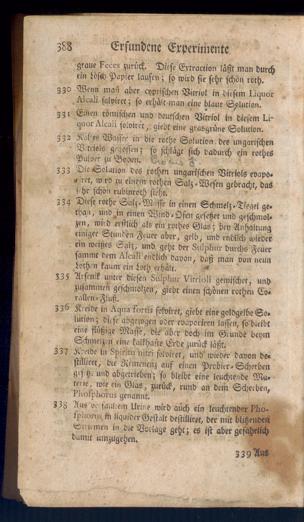 388 Erfundene Experimente
graue Feces zurück. Diese Extraction läßt man durch
ein Lösch-Papier laufen; so wird sie sehr schön roth.
330 Wenn man aber cyprischen Vitriol in diesem Liquor
Alcali solviret; so erhält man eine blaue Solution.
331 Einen römischen und deutschen Vitriol in diesem Li-
quor Alcali solviret, giebt eine grasgrüne Solution.
332 Kaltes Wasser in die rothe Solution des ungarischen
Vitriols gegossen; so schlägt sich dadurch ein rothes
Pulver zu Boden.
333 Die Solution des rothen ungarischen Vitriols evapo-
riret, wird zu einem rothen Salz-Wesen gebracht, das
sehr schön rubinroth siehet.
334 Diese rothe Salz-Masse in einen Schmelz-Tiegel ge-
than, und in einen Wind-Ofen gesetzet und geschmol-
zen, wird erstlich als ein rothes Glas; bey Anhaltung
einiger Stunden Feuer aber, gelb, und endlich wieder
ein weisses Salz, und geht der Sulphur durchs Feuer
sammt dem Alcali endlich davon, daß man von neun
Lothen kaum ein Loth erhält.
335 Arsenik unter diesen Sulphur Vitrioli gemischet, und
zusammen geschmolzen, giebt einen schönen rothen Co-
rallen-Fluß.
336 Kreide in Aqua fortis solviret, giebt eine goldgelbe So-
lution; diese abgezogen oder evaporiren lassen, so bleibt
eine flüßige Masse, die aber doch im Grunde beym
Schmelzen eine kalkhafte Erde zurück läßt.
337 Kreide in Spiritu nitri solviret, und wieder davon de-
stilliret, die Remanenz auf einen Probier-Scherben
und abgetrieben; so bleibt eine leuchtende Ma-
terie, wie ein Glas, zurück, rund an dem Scherben,
Phosphorus genannt.
338 Aus gefaultem Urine wird auch ein leuchtender Pho-
sphorus in liquider Gestalt destilliret, der mit blitzenden
Strömen in die Vorlage geht; es ist aber gefährlich
damit umzugehen.
339 Aus